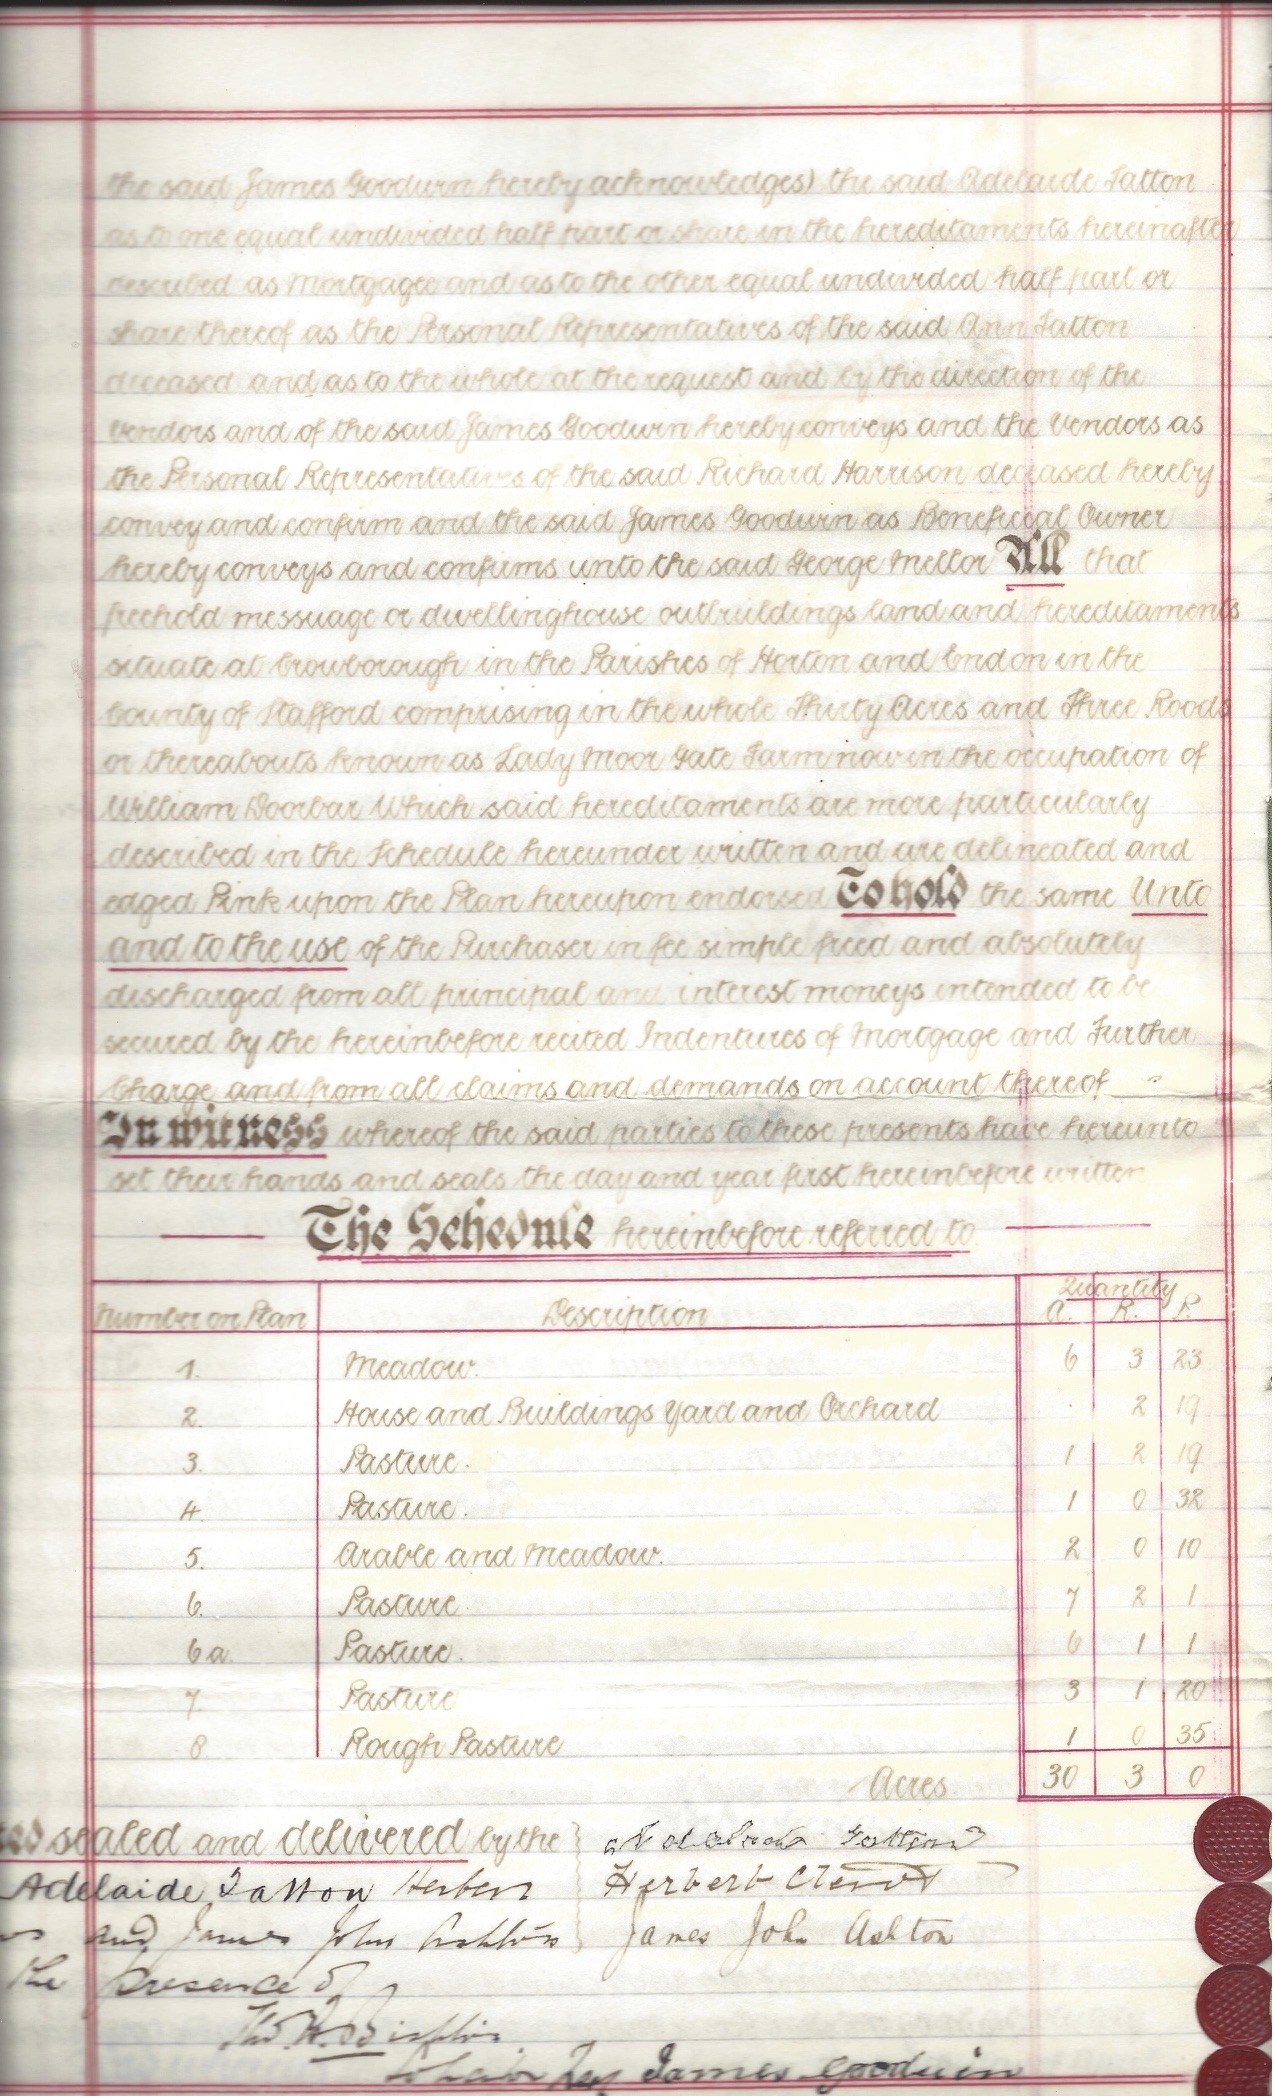 the said James Goodwin hereby acknowledges) the said Adelaide Tatton
as to one equal undivided half part or share in the hereditaments hereinafter
described as Mortgagee and as to the other equal undivided half part or
share thereof as the Personal Representatives of the said Ann Tatton
deceased and as to the whole at the request and by the direction of the
Vendors and of the said James Goodwin hereby conveys and the Vendors as
the Personal Representatives of the said Richard Harrison deceased hereby
convey and confirm and the said James Goodwin as Beneficial Owner
hereby conveys and confirms unto the said George Mellor All that
freehold messuage or dwellinghouse outbuildings land and hereditaments
situate at Crowborough in the Parishes of Horton and Endon in the
County of Stafford comprising in the whole Thirty Acres and Three Roods
or thereabouts known as Lady Moor Gate Farm now in the occupation of
William Doorbar Which said hereditaments are more particularly
described in the Schedule hereunder written and are delineated and
edged Pink upon the Plan hereupon endorsed To hold the same Unto
and to the use of the Purchaser in fee simple freed and absolutely
discharged from all principal and interest moneys intended to be
secured by the hereinbefore recited Indentures of Mortgage and Further
Charge and from all claims and demands on account thereof
In witness whereof the said parties to these presents have hereunto
set their hands and seals the day and year first hereinbefore written
The Schedule hereinbefore referred to.
Quantity
Number on Plan Description A. R. P.
1. Meadow. 6 3 23
2. House and Buildings Yard and Orchard 2 19
3. Pasture. 1 2 19
4. Pasture. 1 0 32
5. Arable and Meadow. 2 0 10
6. Pasture. 7 2 1
6a. Pasture. 6 1 1
7. Pasture 3 1 20
8 Rough Pasture 1 0 35
Acres. 30 3 0
sealed and delivered by the Adelaide Tatton
Adelaide Tatton Herbert Herbert
and James John Ashton James John Ashton
the presence of
James Goodwin